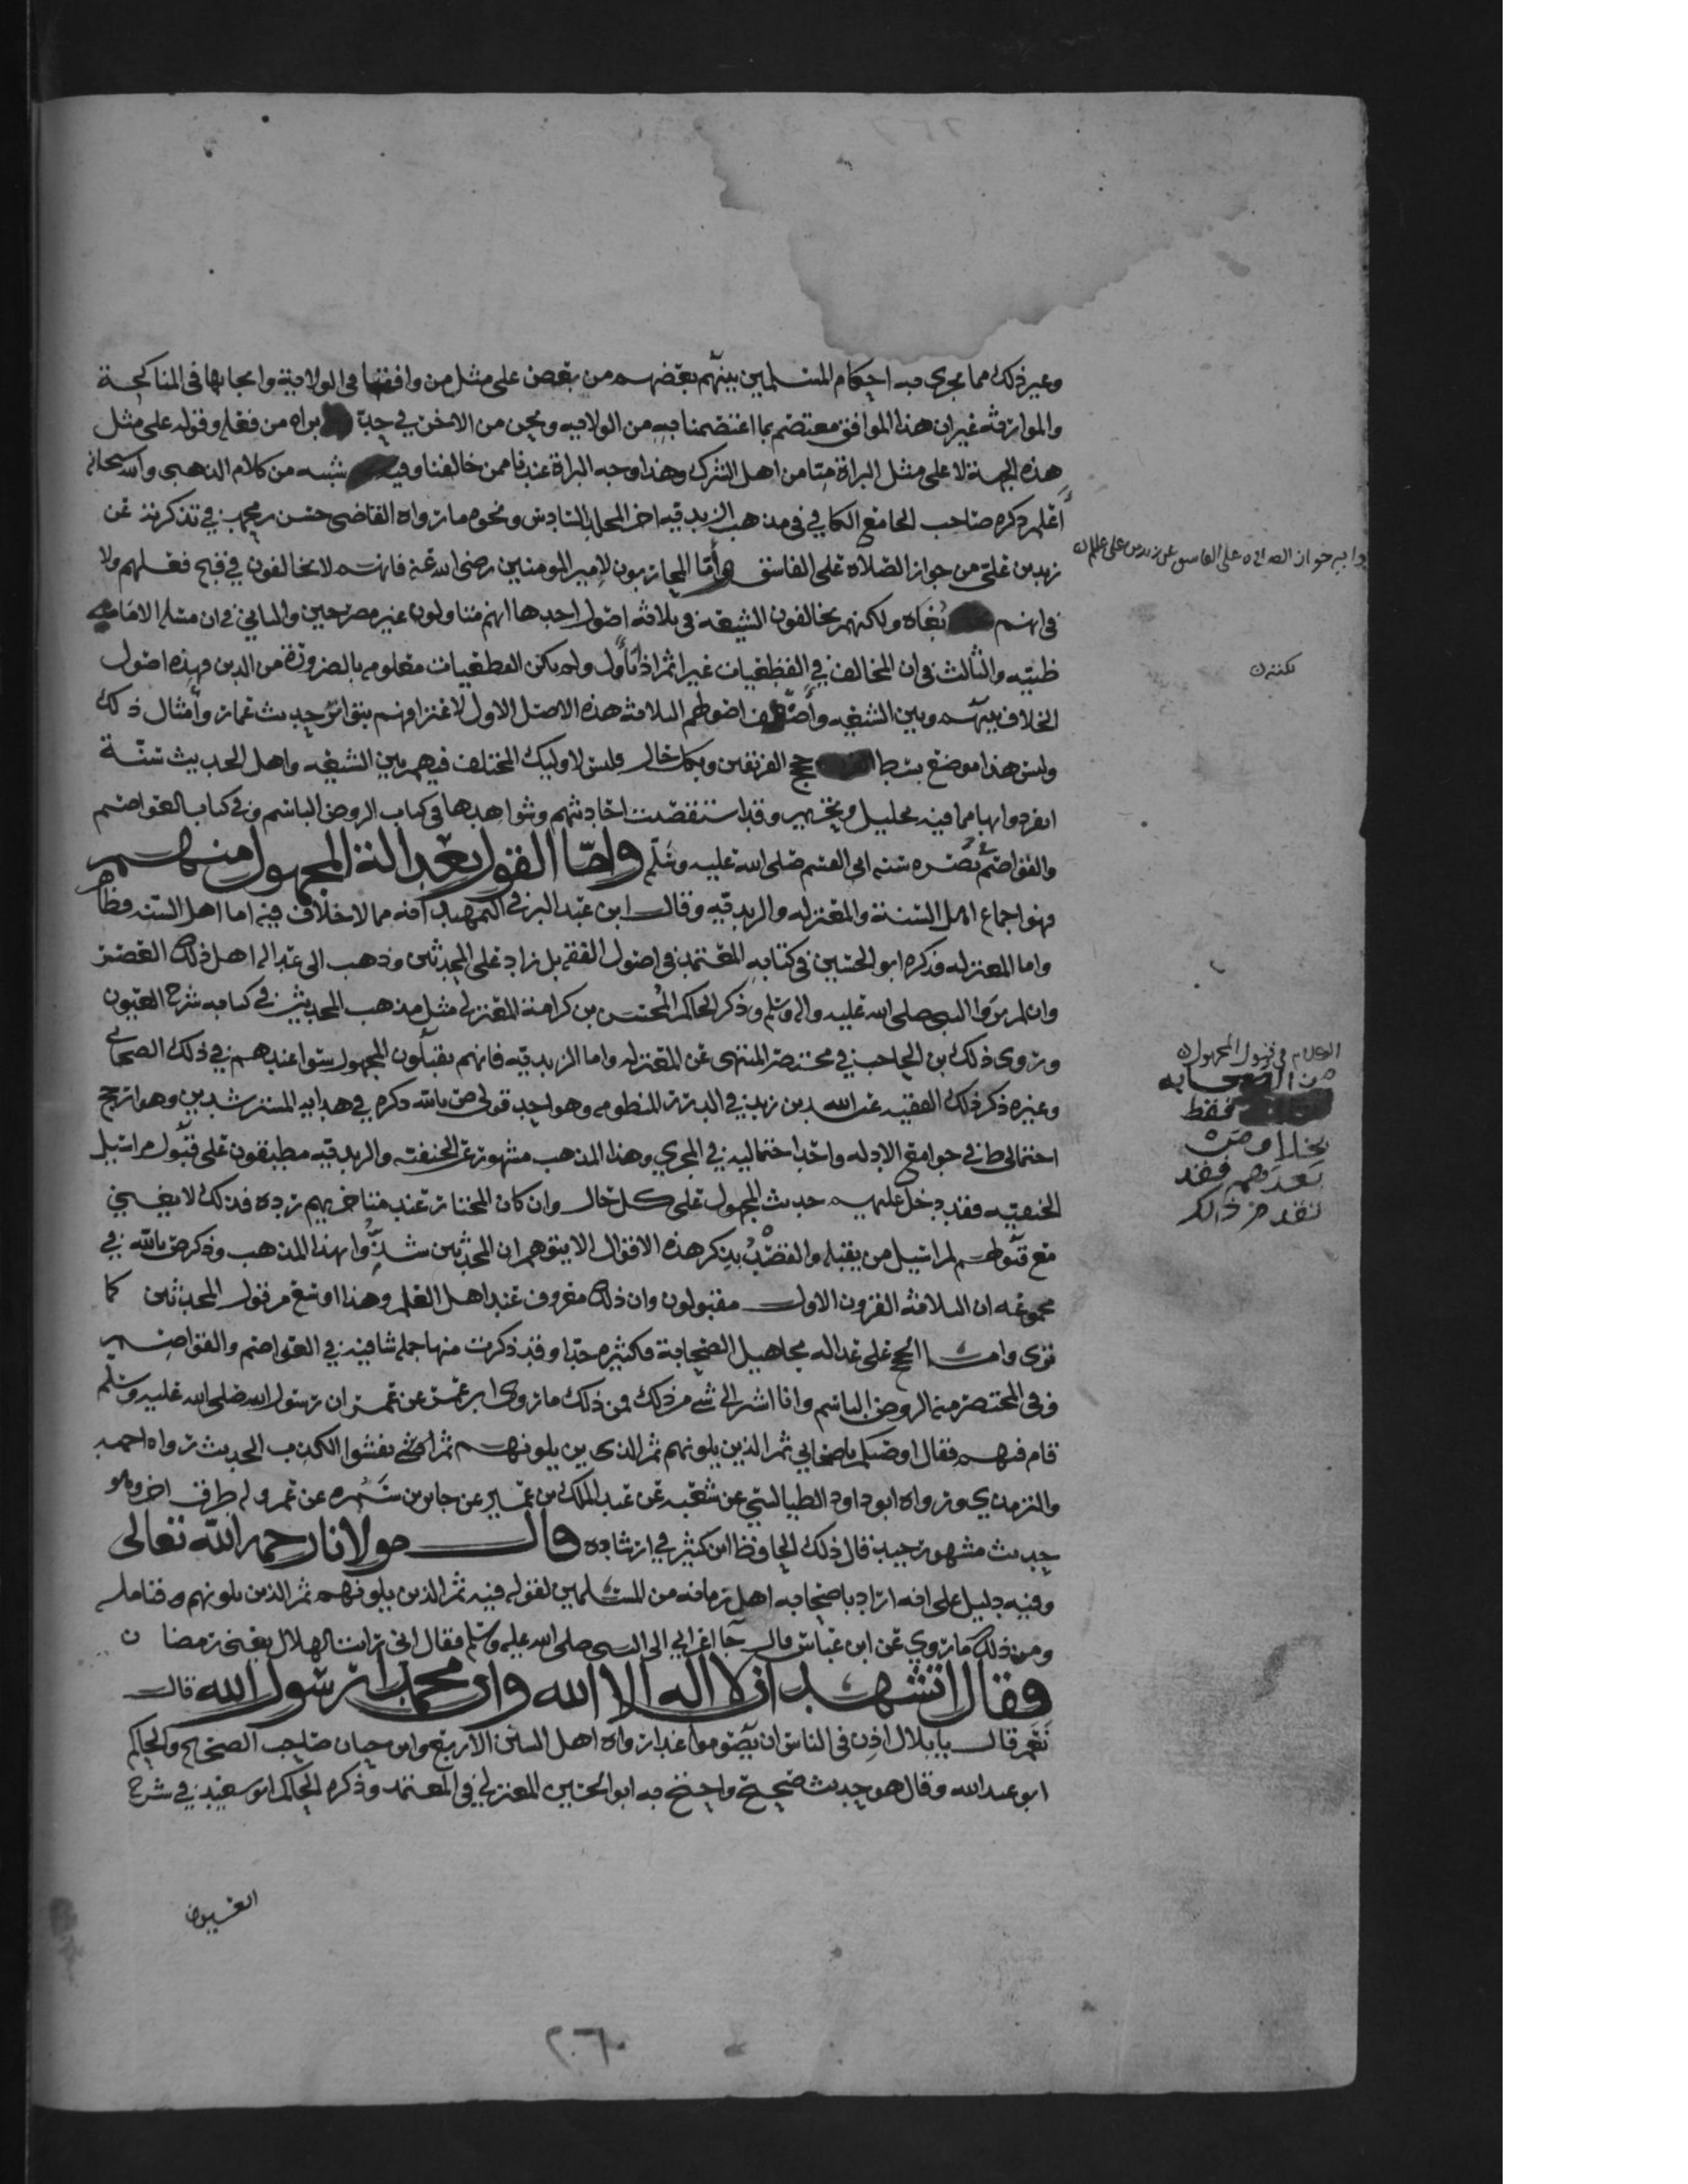 وغير ذلك مما يجري فيه احكام المسلمين بينهم بعضهم من بعض على مثل من وافقنا في الولاية وايجابها في المناكحة
والموارثة غير ان هذا الموافق معتصم بما اعتصمنا به من الولاية ونحن من الاخر في حد براه من فعله وقوله على مثل
هذه الجهة لا على مثل البراة منا من اهل الشرك وهذا وجه البراة عندنا ممن خالفنا وفيه من كلام الذهبي والله سبحانه
اعلم ذكره صاحب الجامع الكافي في مذهب الزيدية اخر المجلد السادس ونحوه ما رواه القاضي حسن بن محمد في تذكرته عن
زيد بن علي من جواز الصلاة على الفاسق واما المحاربون لامير المومنين رضي الله عنه فانهم لا يخالفون في قبح فعلهم ولا
في انهم بغاه ولكنهم يخالفون الشيعه في ثلاثه اصول احدها انهم متاولون غير مصرحين والثاني في ان مسلة الامامه
ظنيه والثالث في ان المخالف في القطعيات غير اثم اذا تأول ولم يكن القطعيات معلومه بالضرورة من الدين فهذه اصول
الخلاف بينهم وبين الشيعه وأضعف اصولهم الثلاثة هذه الاصل الاول لاعترافهم بتواتر حديث عمار وأمثال ذلك
وليس هذا موضع بسط حجج الفريقين وبكل حال فليس لاوليك المختلف فيهم بين الشيعه واهل الحديث سنة
انفردوا بها مما فيه تحليل وتحريم وقد استقصيت احاديثهم وشواهدها في كتاب الروض الباسم وفي كتاب العواصم
والقواصم نصره سنه ابي القسم صلى الله عليه وسلم واما القول بعدالة المجهول منهم
فهو اجماع اهل السنة والمعتزله والزيديه وقال ابن عبد البر في التمهيد انه مما لا خلاف فيه اما اهل السنه فظاهر
واما المعتزله فذكره ابو الحسين في كتابه المعتمد في اصول الفقه بل زاد على المحدثين وذهب الى عدالة اهل ذلك العصر
وان لم يروا النبي صلى الله عليه واله وسلم وذكر الحاكم المحسن بن كرامة المعتزلي مثل مذهب المحدثين في كتابه شرح العيون
وروى ذلك بن الحاجب في مختصر المنتهى عن المعتزله واما الزيديه فانهم يقبلون المجهول سوا عندهم في ذلك الصحابي
وغيره ذكر ذلك الفقيه عبد الله بن زيد في الدرر المنظومه وهو احد قولي ص بالله ذكره في هدايه المسترشدين وهو ارجح
احتمالي ط في جوامع الادله واحد احتماليه في المجزي وهذا المذهب مشهور عن الحنفيه والزيديه مطبقون على قبول مراسيل
الحنفيه فقد دخل عليهم حديث المجهول على كل حال وان كان المختار عند متاخريهم رده فذلك لا يغني
مع قبولهم لمراسيل من يقبله والقصد بذكر هذه الاقوال الا يتوهم ان المحدثين شذوا بهذا المذهب وذكر ص بالله في
مجموعه ان الثلاثة القرون الاول مقبولون وان ذلك معروف عند اهل العلم وهذا اوسع من قول المحدثين كما
ترى واما الحج على عدالة مجاهيل الصحابة فكثيره جدا وقد ذكرت منها جمله شافيه في العواصم والقواصم
وفي المختصر منه الروض الباسم وانا اشير الى شي من ذلك فمن ذلك ما روى ابن عمر عن عمر ان رسول الله صلى الله عليه وسلم
قام فيهم فقال اوصيكم باصحابي ثم الذين يلونهم ثم الذين يلونهم ثم يفشوا الكذب الحديث رواه احمد
والترمذي ورواه ابو داود الطيالسي عن شعبه عن عبد الملك بن عمير عن جابر بن سمره عن عمر وله طرق اخر وهو
حديث مشهور جيد قال ذلك الحافظ ابن كثير في ارشاده قال مولانا رحمه الله تعالى
وفيه دليل على انه اراد باصحابه اهل زمانه من المسلمين لقوله فيه ثم الذين يلونهم ثم الذين يلونهم فتامله
ومن ذلك ما روي عن ابن عباس قال جا اعرابي الى النبي صلى الله عليه وسلم فقال اني رايت الهلال يعني رمضان
فقال اتشهد ان لا اله الا الله وان محمدا رسول الله قال
نعم قال يا بلال اذن في الناس ان يصوموا غدا رواه اهل السنن الاربع وابن حبان صاحب الصحيح والحاكم
ابو عبد الله وقال هو حديث صحيح واحتج به ابو الحسين المعتزلي في المعتمد وذكره الحاكم ابو سعيد في شرح
العيون
جواز الصلاه على الفاسق عن زيد بن علي
الكلام في قبول المجهول
من الصحابه
فقط
بخلاف من
بعدهم فقد
تقدم ذلك
٢٠٦